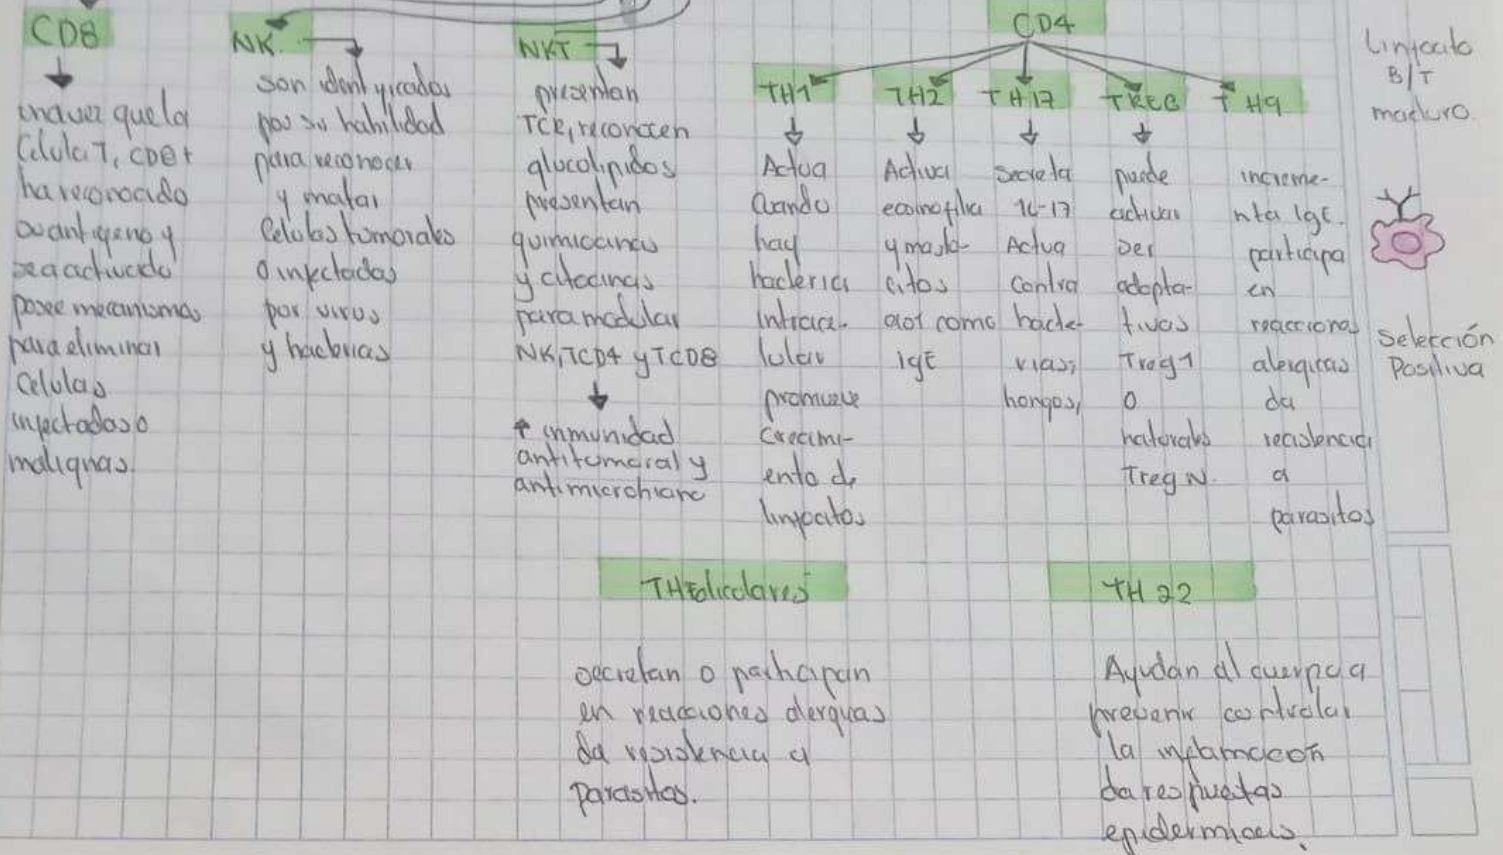 CD8
una vez que la
Celula T, CD8+
ha reconocido
su antigeno y
sea activado
posee mecanismos
para eliminar
Celulas
infectadas o
malignas.
NK.
son identificadas
por su habilidad
para reconocer
y matar
Celulas tumorales
o infectadas
por virus
y bacterias
NKT
presentan
TCR, reconocen
glucolipidos
presentan
quimiocinas
y citocinas
para modular
NK, TCD4 y TCD8
↑ inmunidad
antitumoral y
antimicrobiano
CD4
TH1
Actua
Cuando
hay
bacteria
intrace-
lular
promueve
Crecimi-
ento de
linfocitos
TH2
Activa
eosinofilia
y masto-
citos
asi como
IgE
TH17
Secreta
IL-17
Actua
Contra
bacte-
rias,
hongos,
TREG
puede
activar
ser
adapta-
tivas
Treg1
o
naturales
Treg N.
TH9
increme-
nta IgE.
participa
en
reacciones
alergicas
da
resistencia
a
parasitos
Linfocito
B/T
maduro.
Selección
Positiva
TH Foliculares
secretan o participan
en reacciones alergicas
da resistencia a
parasitos.
TH 22
Ayudan al cuerpo a
prevenir controlar
la inflamacion
da respuestas
epidermicas.